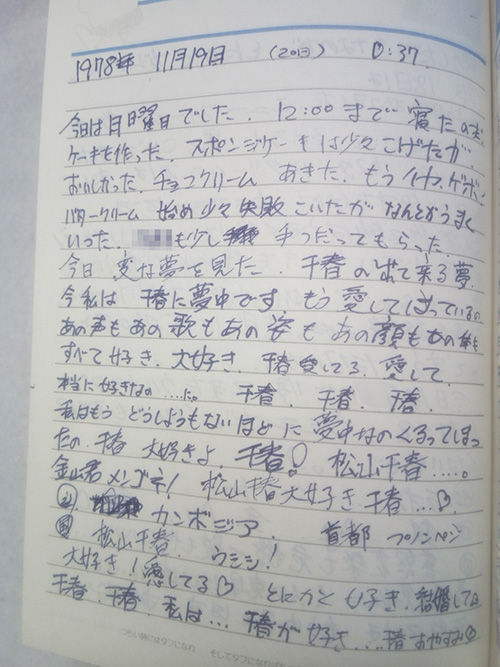 1978年 11月19日 (20日) 0:37.
今日は日曜日でした. 12:00まで寝たのだ
ケーキを作った. スポンジケーキは少々こげたが
おいしかった. チョコクリーム あきた. もう イヤネ. ゲボ.
バタークリーム 始め少々失敗 こいたがなんとかうまく
いった. も少し手つだってもらった.
今日 変な夢を見た. 千春の出て来る夢.
今私は 千春に夢中です もう愛してしまっているの
あの声もあの歌もあの姿もあの顔もあの体も
すべて好き. 大好き. 千春愛してる. 愛して.
本当に好きなの……だ。 千春. 千春. 千春.
私はもう どうしようもないほどに夢中なのくるってしまっ
たの. 千春 大好きよ 千春! 松山千春…..。
金山君メンゴネ! 松山千春大好き 千春…♡
カンボジア. 首都 プノンペン
松山千春. ウシシ!
大好き!愛してる♡ とにかく好き. 結婚して
千春. 千春. 私は… 千春が好き….千春おやすみ
つらい時にはタフになれ そしてタフになれば